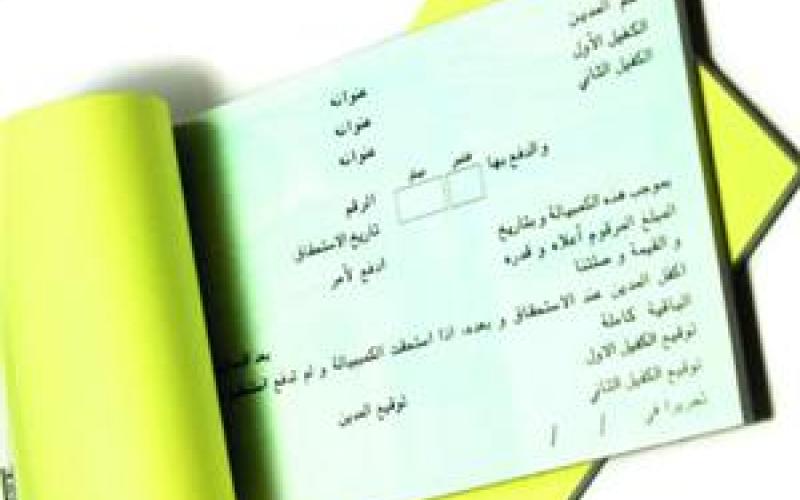 المدين عنوانه
الكفيل الأول عنوانه
الكفيل الثاني عنوانه
والدفع بها
الرقم
بموجب هذه الكمبيالة وبتاريخ تاريخ الاستحقاق
المبلغ المرقوم أعلاه و قدره ادفع لأمر
و القيمة و صلتنا
اكفل المدين عند الاستحقاق و بعده، اذا استحقت الكمبيالة و لم تدفع
الباقية كاملة
توقيع الكفيل الاول
توقيع الكفيل الثاني توقيع المدين
تحريرا في / /